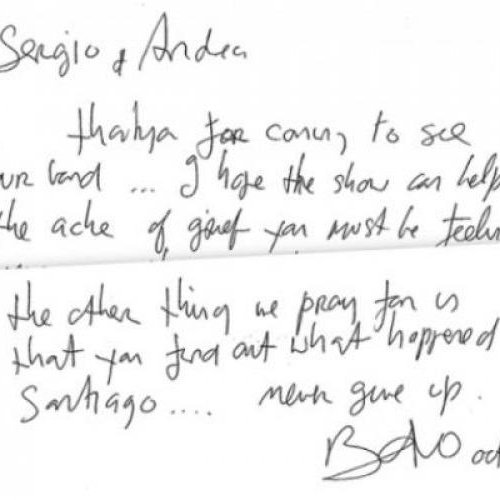 Sergio & Andrea
thankya for coming to see
our band ... I hope the show can help
the ache of grief you must be feelin
the other thing we pray for is
that you find out what happened
Santiago .... never give up.
BONO oct